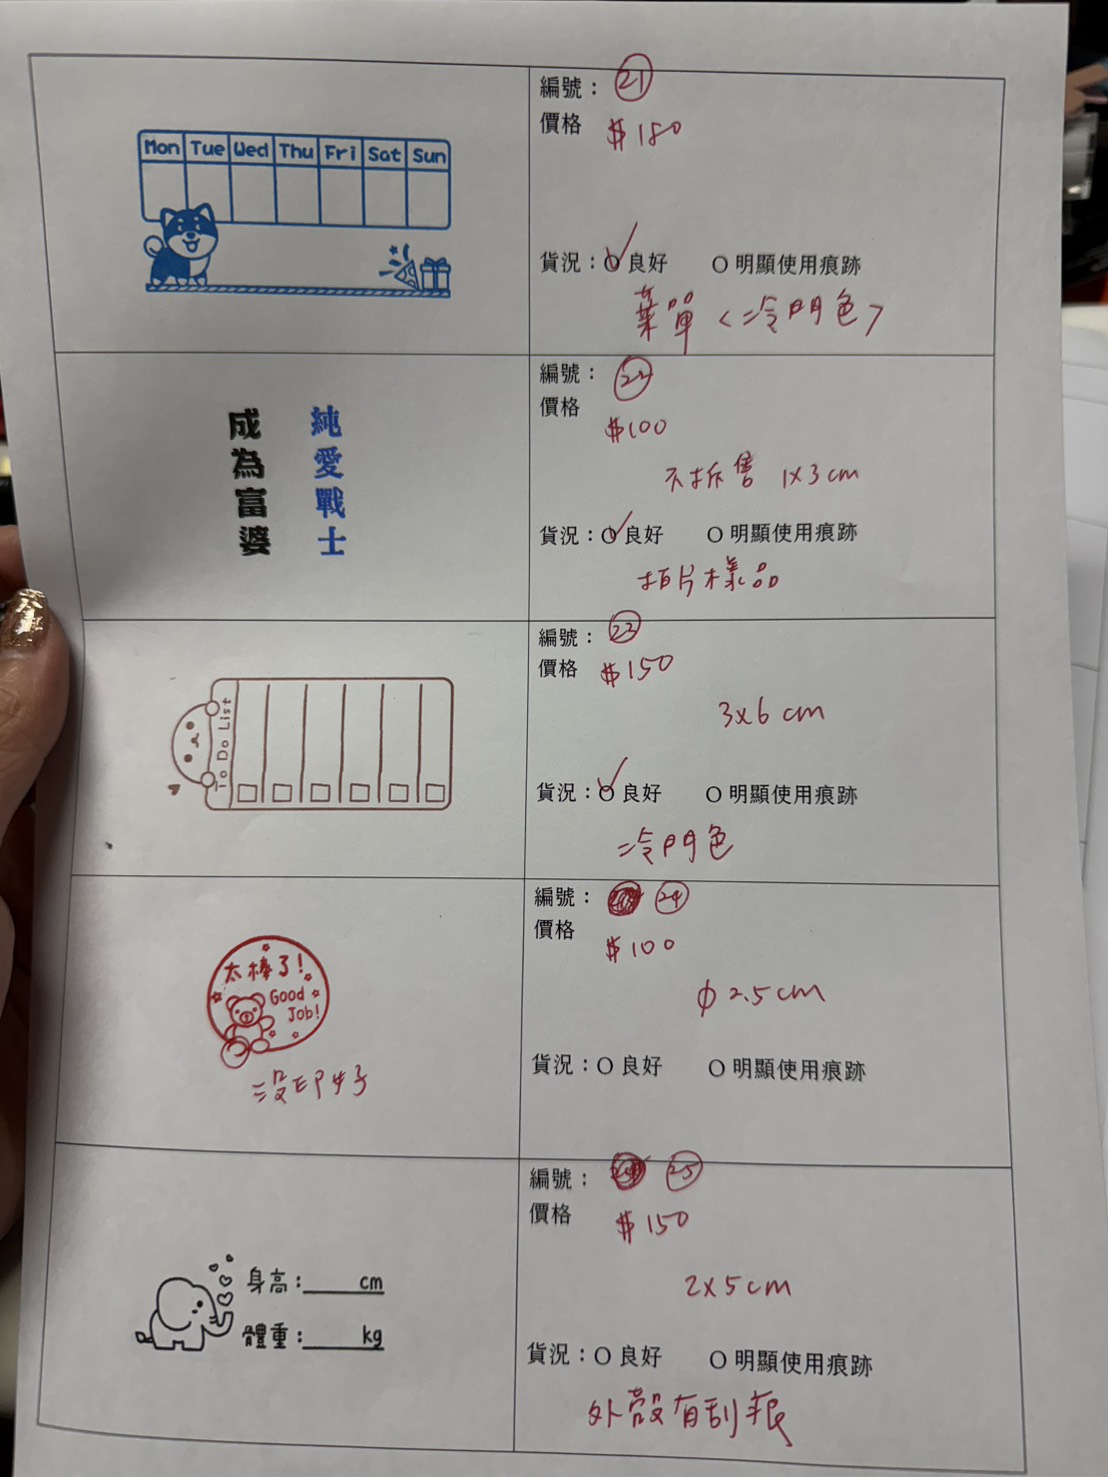 Mon Tue Wed Thu Fri Sat Sun
編號： 21
價格 $180
貨況：○良好 ○明顯使用痕跡
菜單<冷門色>
純愛戰士
成為富婆
編號： 22
價格
$100
不拆售 1x3cm
貨況：○良好 ○明顯使用痕跡
拍片樣品
To Do List
編號： 23
價格 $150
3x6cm
貨況：○良好 ○明顯使用痕跡
冷門色
太棒了!
Good
Job!
沒印好
編號： 24
價格 $100
φ2.5cm
貨況：○良好 ○明顯使用痕跡
身高:____cm
體重:____kg
編號： 25
價格 $150
2x5cm
貨況：○良好 ○明顯使用痕跡
外殼有刮痕